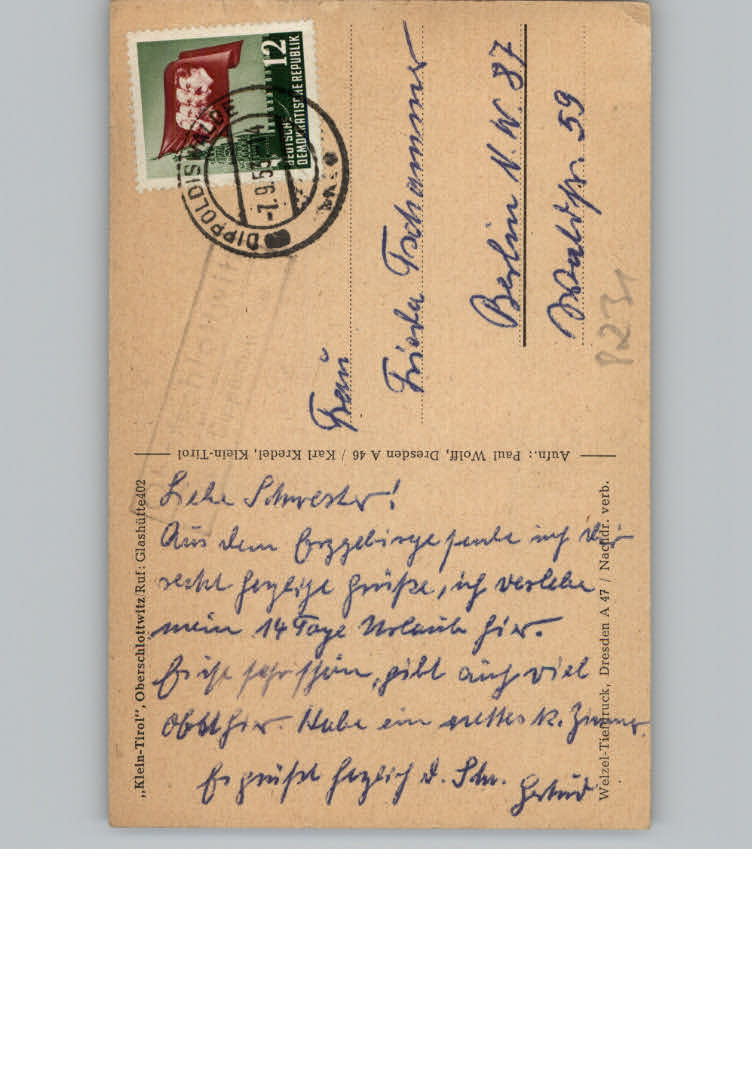 „Klein-Tirol", Oberschlottwitz/Ruf: Glashütte402
Liebe Schwester!
Aus dem Erzgebirge sende ich Dir
recht herzliche Grüße, ich verlebe
mein 14 Tage Urlaub hier.
Es ist sehr schön, gibt auch viel
Obst hier. Habe ein nettes kl. Zimmer.
Es grüßt herzlich d. Schw. Gertrud
Welzel-Tiefdruck, Dresden A 47 / Nachdr. verb.
Aufn.: Paul Wolff, Dresden A 46 / Karl Kredel, Klein-Tirol
12
DEUTSCHE
DEMOKRATISCHE REPUBLIK
DIPPOLDISWALDE
-7.9.5
Frau
Frieda Tschammer
Berlin N.W. 87
Waldstr. 59